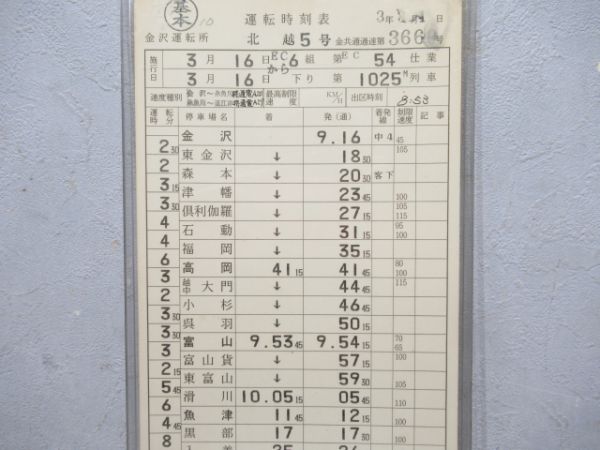 基本 10
運転時刻表
3年 月 日
金沢運転所 北越5号 金共通通達第366 号
施行日 3月16日から EC6組 第EC54仕業
3月16日 下り 第1025M列車
速度種別 最高制限速度 KM/H 出区時刻 8.53
運転時分 停車場名 着 発(通) 着発線 制限速度 記事
金沢 9.16 中4 45
2 30 東金沢 ↓ 18 30 105
2 森本 ↓ 20 30 客下
3 15 津幡 ↓ 23 45 100
3 30 倶利伽羅 ↓ 27 15 105 115
4 石動 ↓ 31 15 95 100
4 福岡 ↓ 35 15
6 高岡 41 15 41 45 80 100
3 越中大門 ↓ 44 45 115
2 小杉 ↓ 46 45
3 30 呉羽 ↓ 50 15
3 30 富山 9.53 45 9.54 15 70 65
3 富山貨 ↓ 57 15 100
2 15 東富山 ↓ 59 30
5 45 滑川 10.05 15 05 45 105
6 魚津 11 45 12 15 110
4 45 黒部 17 17 30 100
8 25 26